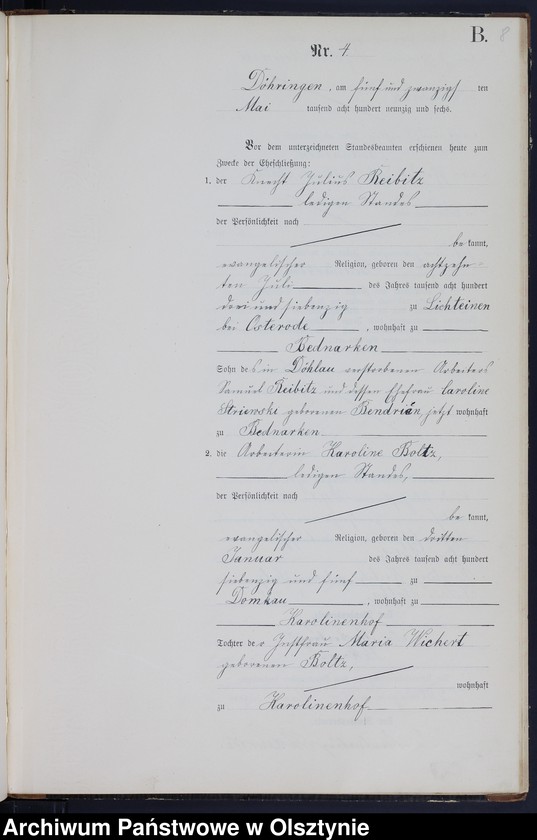 B. 8
Nr. 4
Döhringen, am fünf und zwanzigsten
Mai tausend acht hundert neunzig und sechs.
Vor dem unterzeichneten Standesbeamten erschienen heute zum
Zwecke der Eheschließung:
1. der Knecht Julius Reibitz
ledigen Standes
der Persönlichkeit nach
be kannt,
evangelischer Religion, geboren den achtzehn-
ten Juli des Jahres tausend acht hundert
drei und siebenzig zu Lichteinen
bei Osterode, wohnhaft zu
Bednarken
Sohn des in Döhlau verstorbenen Arbeiters
Samuel Reibitz und dessen Ehefrau Caroline
Striewski geborenen Bendrián, jetzt wohnhaft
zu Bednarken
2. die Arbeiterin Karoline Boltz,
ledigen Standes,
der Persönlichkeit nach
be kannt,
evangelischer Religion, geboren den dritten
Januar des Jahres tausend acht hundert
siebenzig und fünf zu
Domkau, wohnhaft zu
Karolinenhof
Tochter der Instfrau Maria Wichert
geborenen Boltz,
wohnhaft
zu Karolinenhof
Archiwum Państwowe w Olsztynie